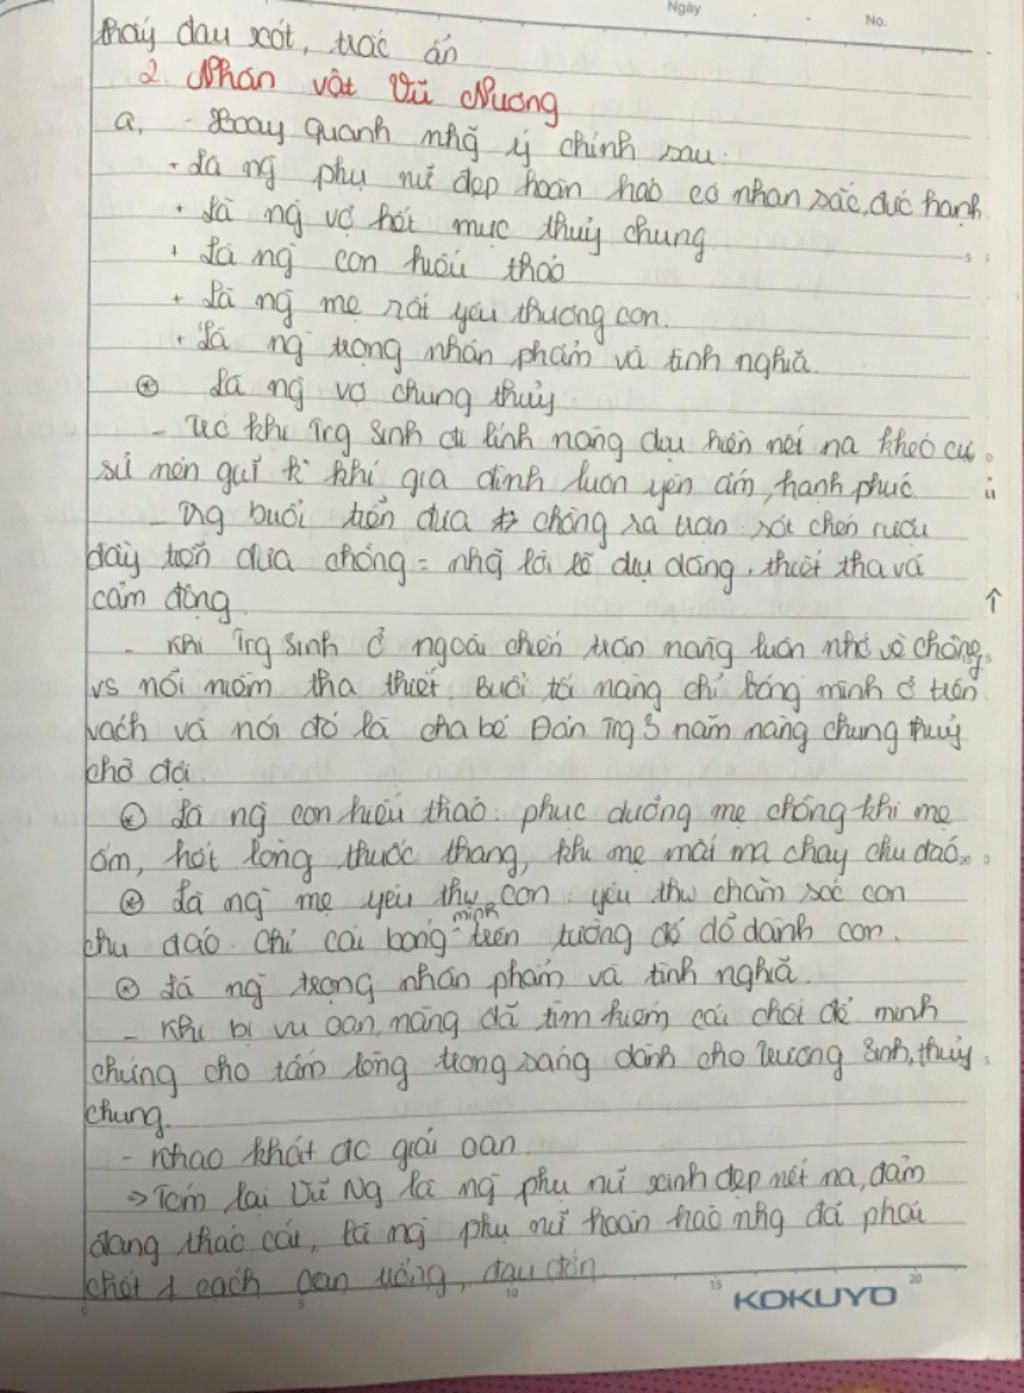 Ngày
No.
thấy đau xót, trắc ẩn
2. Nhân vật Vũ Nương
a, - Xoay quanh nhg̃ ý chính sau:
+ Là ng̀ phụ nữ đẹp hoàn hảo có nhan sắc, đức hạnh
+ Là ng̀ vợ hết mực thuỷ chung
+ Là ng̀ con hiếu thảo
+ Là ng̀ mẹ rất yêu thương con.
+ Là ng̀ trọng nhân phẩm và tình nghĩa.
⊛ Là ng̀ vợ chung thuỷ
- Trc khi Trg Sinh đi lính nàng dịu hiền nết na khéo cư
xử nên giữ k khí gia đình luôn yên ấm, hạnh phúc.
- Trg buổi tiễn đưa chồng ra trận rót chén rượu
đầy tiễn đưa chồng = nhg̃ lời lẽ dịu dàng, thiết tha và
cảm động.
- Khi Trg Sinh ở ngoài chiến trận nàng luôn nhớ về chồng
vs nỗi niềm tha thiết. Buổi tối nàng chỉ bóng mình ở trên
vách và nói đó là cha bé Đản Trg 3 năm nàng chung thuỷ
chờ đợi
⊛ Là ng̀ con hiếu thảo: phục dưỡng mẹ chồng khi mẹ
ốm, hết lòng thuốc thang, khi mẹ mất ma chay chu đáo.
⊛ Là ng̀ mẹ yêu thg con: yêu thw chăm sóc con
chu đáo. Chỉ cái bóng mình trên tường để dỗ dành con.
⊛ Là ng̀ trọng nhân phẩm và tình nghĩa.
- Khi bị vu oan, nàng đã tìm kiếm cái chết để minh
chứng cho tấm lòng trong sáng dành cho Trương Sinh, thuỷ
chung.
- Khao khát đc giải oan.
⇒ Tóm lại Vũ Ng là ng̀ phụ nữ xinh đẹp nết na, đảm
đang tháo cát, là ng̀ phụ nữ hoàn hảo nhg đã phải
chết 1 cách oan uổng, đau đớn
0 5 10 15 20
KOKUYO